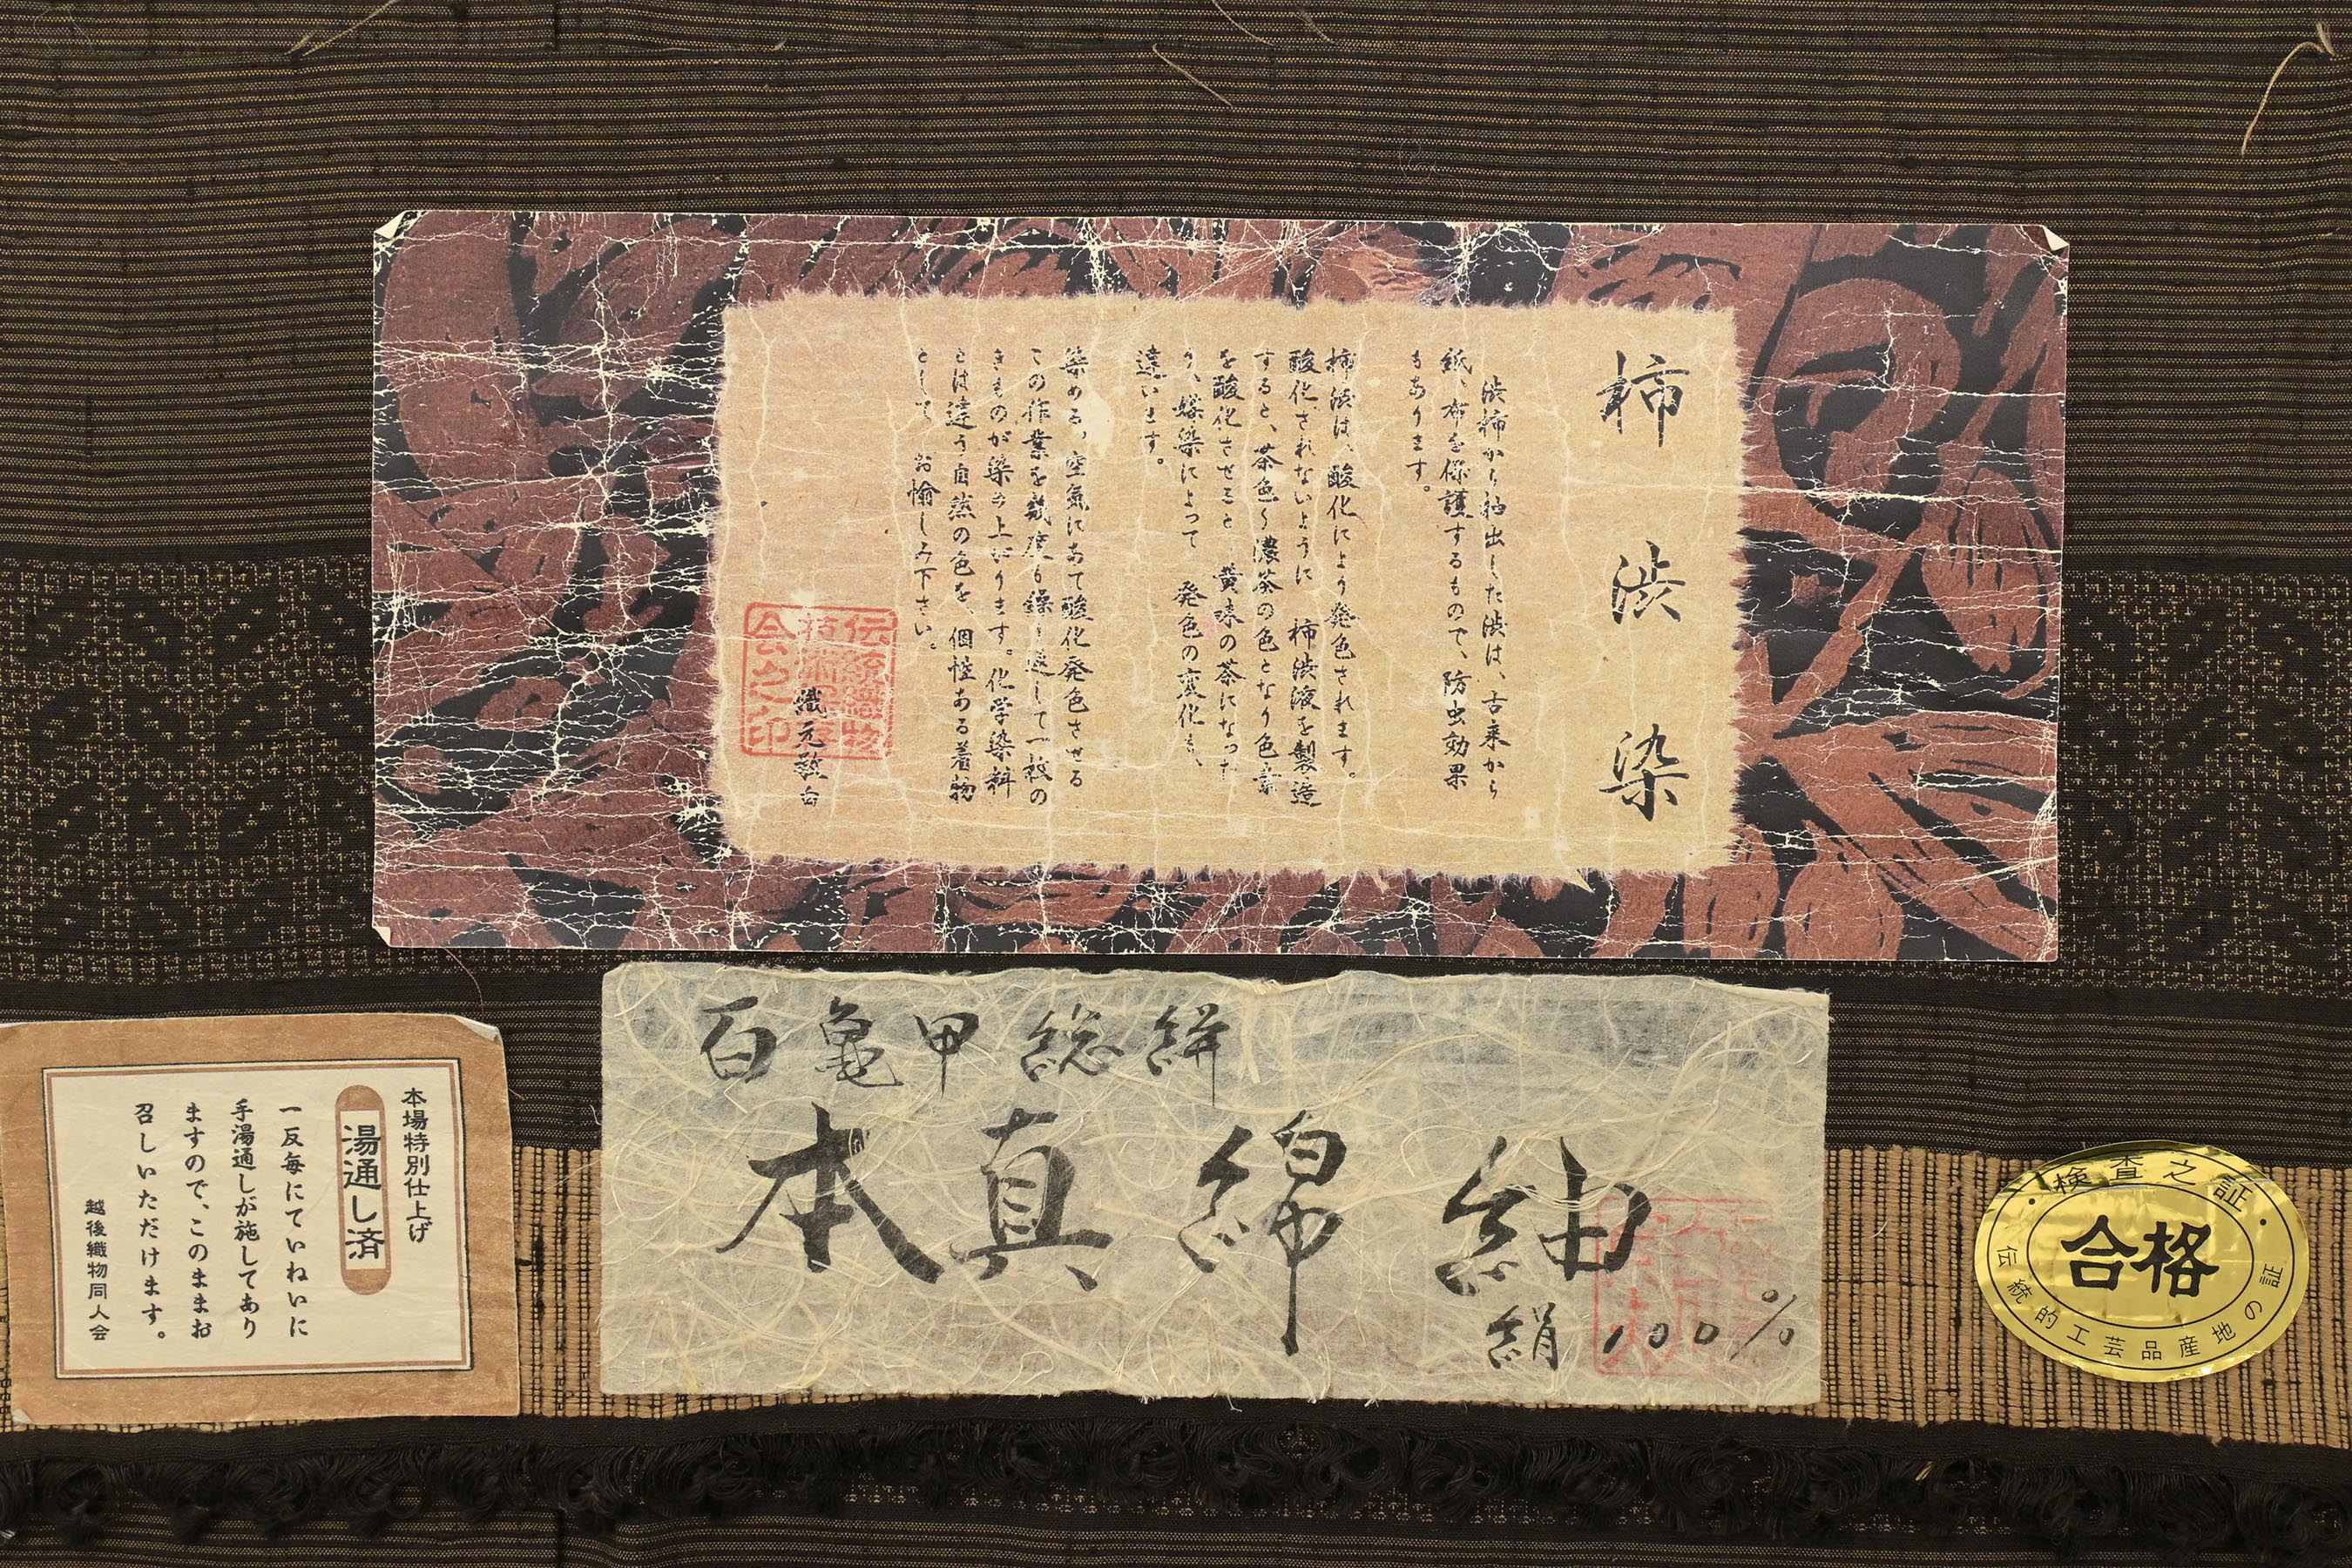 柿渋染
渋柿から抽出した渋は、古来から
紙、布を保護するもので、防虫効果
もあります。
柿渋は、酸化により発色されます。
酸化されないように 柿渋液を製造
すると、茶色〜濃茶の色となり色素
を酸化させること 黄味の茶になった
り、媒染によって 発色の変化も、
違います。
染める、空気にあて酸化発色させる
この作業を幾度も繰り返して一枚の
きものが染め上がります。化学染料
とは違う自然の色を、個性ある着物
として お愉しみ下さい。
織元敬白
伝統織物
会之印
百亀甲総絣
本真綿紬
絹100%
本場特別仕上げ
湯通し済
一反毎にていねいに
手湯通しが施してあり
ますので、このままお
召しいただけます。
越後織物同人会
・検査之証・
合格
伝統的工芸品産地の証